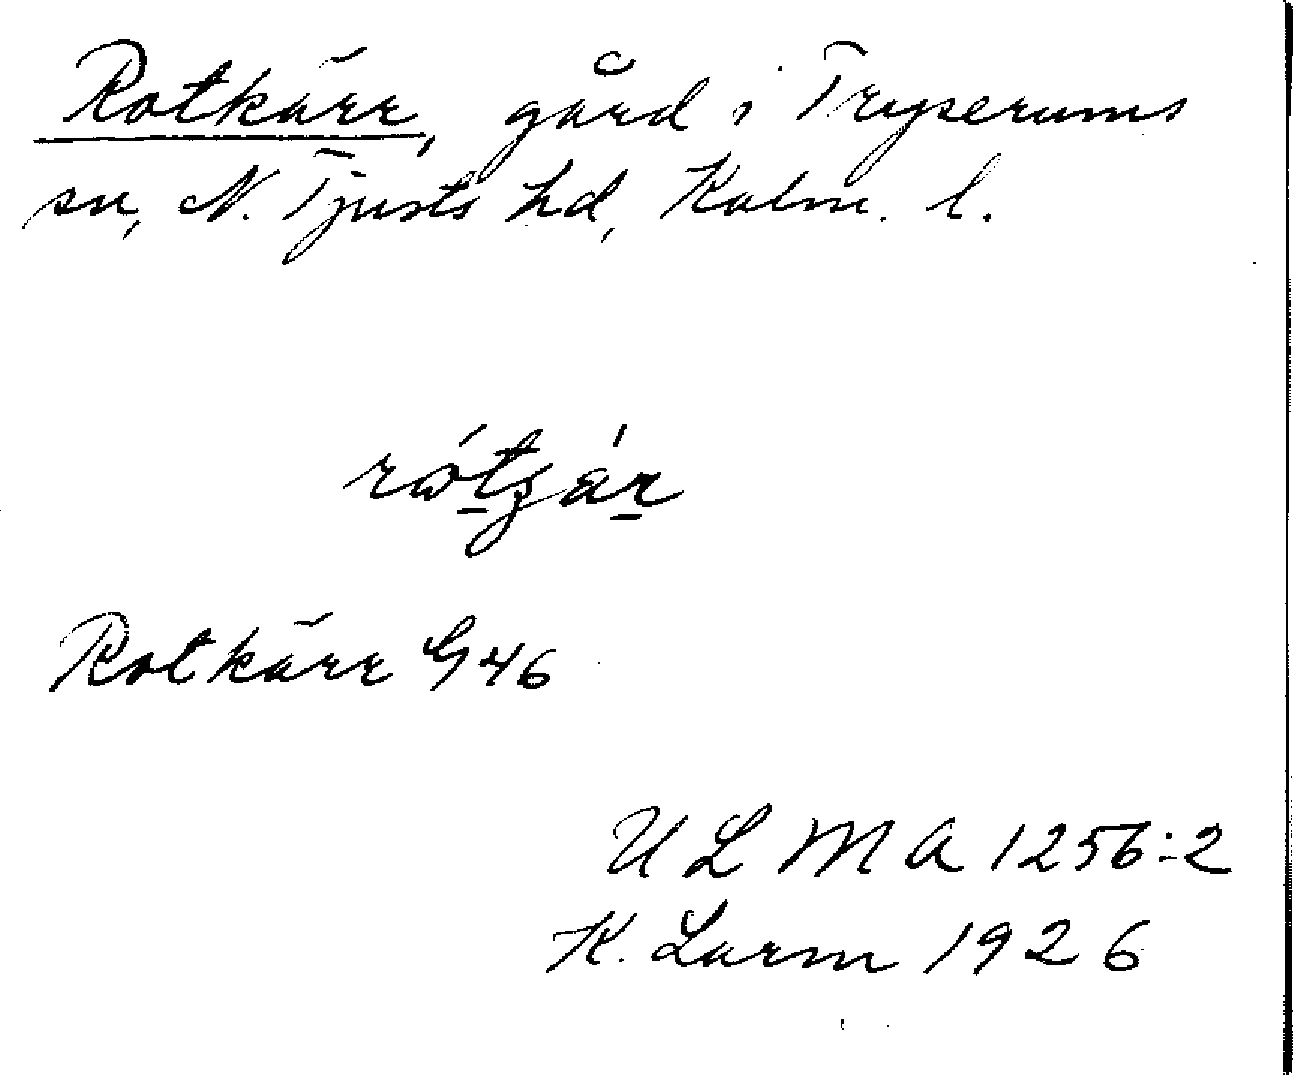 Rotkärr, gård i Tryserums
sn, N. Tjusts hd, Kalm. l.
rώtʒár
Rotkärr G46
ULMA 1256:2
K. Larm 1926